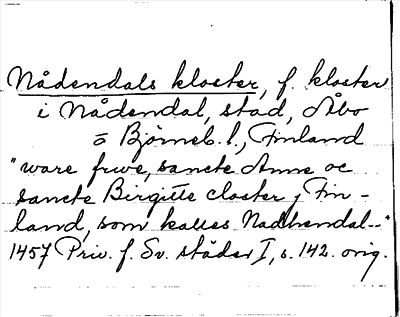 Nådendals kloster, f. kloster
i Nådendal, stad, Åbo
o Bjørneb. l., Finland
"ware frwe, sancte Anne oc
sancte Birgitte closter j Fin-
land, som kalles Nadhendal--"
1457 Priv. f. Sv. städer I, s. 142. orig.